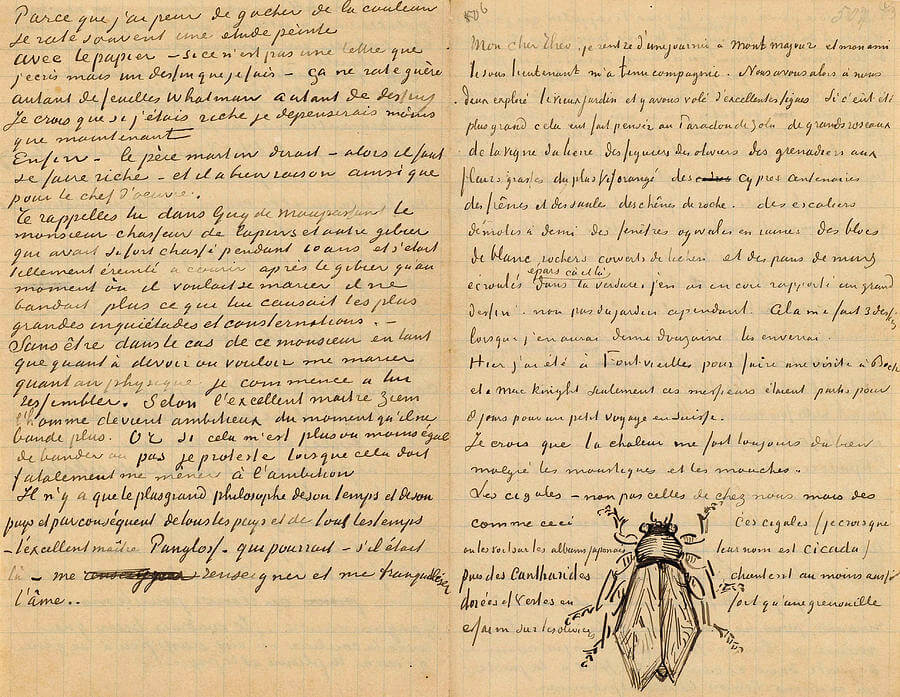 Parce que j'ai peur de gacher de la couleur
je rate souvent une etude peinte
avec le papier – si ce n'est pas une lettre que
j'ecris mais un dessin que je fais – ça ne rate guère
autant de feuilles Whatman autant de dessins
Je crois que si j'étais riche je depenserais moins
que maintenant
Enfin – le père martin dirait – alors il faut
se faire riche – et il a bien raison ainsi que
pour le chef d'oeuvre.
Te rappelles tu dans Guy de Maupassant le
monsieur chasseur de lapins et autre gibier
qui avait si fort chassé pendant 10 ans et s'était
tellement éreinté a courir après le gibier qu'au
moment où il voulait se marier il ne
bandait plus ce que lui causait les plus
grandes inquiétudes et consternations. –
Sans être dans le cas de ce monsieur en tant
que quant à devoir ou vouloir me marier
quant au physique je commence a lui
ressembler. Selon l'excellent maitre Ziem
l'homme devient ambitieux du moment qu'il ne
bande plus. Or si cela m'est plus ou moins égal
de bander ou pas je proteste lorsque cela doit
fatalement me mèner à l'ambition
Il n'y a que le plus grand philosophe de son temps et de son
pays et par conséquent de tous les pays et de tout les temps
– l'excellent maître Pangloss – qui pourrait – s'il était
là – me renseigner et me tranquilliser
l'âme..
506
507
Mon cher Theo, je rentre d'une journée à Mont major et mon ami
le sous lieutenant m'a tenu compagnie. Nous avons alors à nous
deux exploré le vieux jardin et y avons volé d'excellentes figues Si c'eut été
plus grand cela eut fait penser au Paradou de Zola de grands roseaux
de la vigne du lierre des figuiers des oliviers des grenadiers aux
fleurs grasses du plus vif orangé des cypres centenaires
des frênes et des saules des chênes de roche. des escaliers
démolis à demi des fenêtres ogivales en ruines des blocs
de blanc rochers couverts de lichen et des pans de murs
écroulés epars cà et là dans la verdure; j'en ai encore rapporté un grand
dessin. non pas du jardin cependant. Cela me fait 3 dessins
lorsque j'en aurai demi douzaine les enverrai.
Hier j'ai été à Fontvieilles pour faire une visite à Bock
et a Mac Knight seulement ces messieurs étaient partis pour
8 jours pour un petit voyage en Suisse.
Je crois que la chaleur me fait toujours du bien
malgré les moustiques et les mouches.
Les cigales – non pas celles de chez nous mais des
comme ceci
on les voit sur les albums japonais
puis des Cantharides
dorées et vertes en
essaim sur les oliviers
Ces cigales /je crois que
leur nom est cicada/
chantent au moins aussi
fort qu'une grenouille